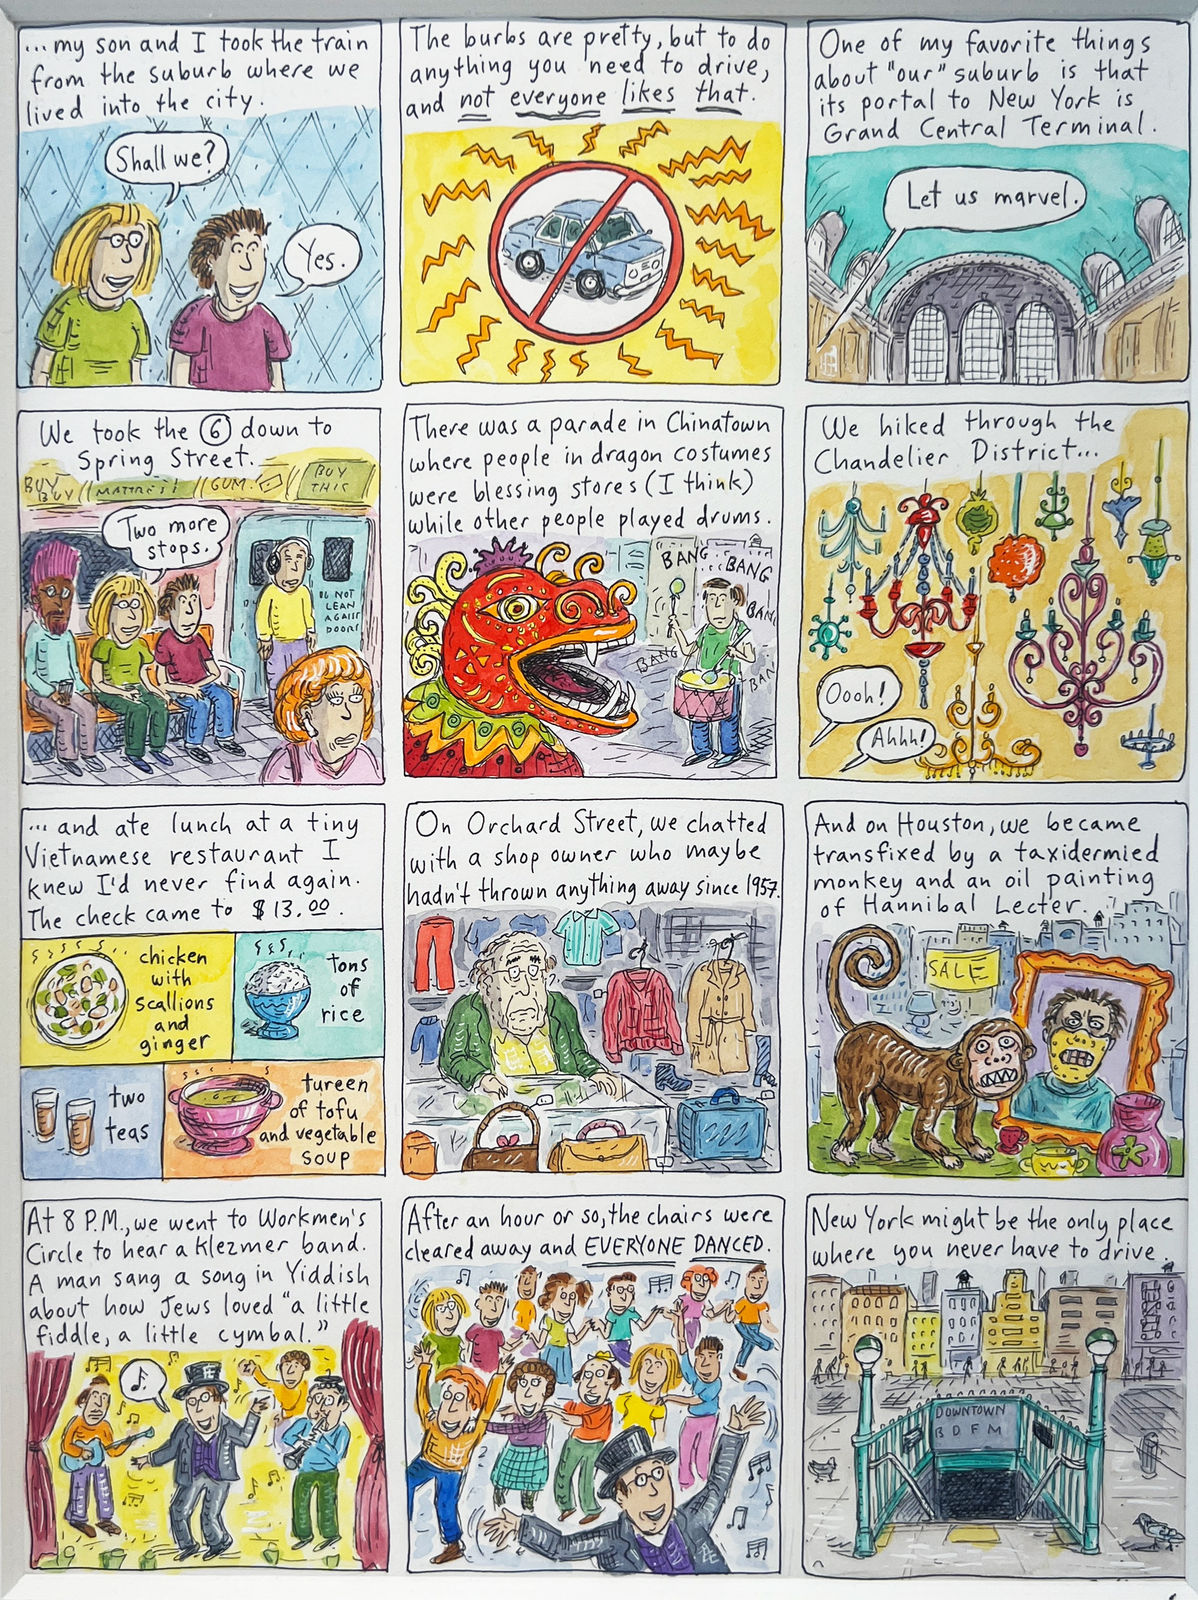 ...my son and I took the train
from the suburb where we
lived into the city.
Shall we?
Yes.
The burbs are pretty, but to do
anything you need to drive,
and not everyone likes that.
One of my favorite things
about "our" suburb is that
its portal to New York is
Grand Central Terminal.
Let us marvel.
We took the 6 down to
Spring Street.
BUY BUY
MATTRESS
GUM
BUY
THIS
Two more
stops.
DO NOT
LEAN
AGAINST
DOORS
There was a parade in Chinatown
where people in dragon costumes
were blessing stores (I think)
while other people played drums.
BANG
BANG
BANG
BANG
BANG
We hiked through the
Chandelier District...
Oooh!
Ahhh!
... and ate lunch at a tiny
Vietnamese restaurant I
knew I'd never find again.
The check came to $13.00.
chicken
with
scallions
and
ginger
tons
of
rice
two
teas
tureen
of tofu
and vegetable
soup
On Orchard Street, we chatted
with a shop owner who maybe
hadn't thrown anything away since 1957.
And on Houston, we became
transfixed by a taxidermied
monkey and an oil painting
of Hannibal Lecter.
SALE
At 8 P.M., we went to Workmen's
Circle to hear a Klezmer band.
A man sang a song in Yiddish
about how Jews loved "a little
fiddle, a little cymbal."
After an hour or so, the chairs were
cleared away and EVERYONE DANCED.
New York might be the only place
where you never have to drive.
DOWNTOWN
B D F M